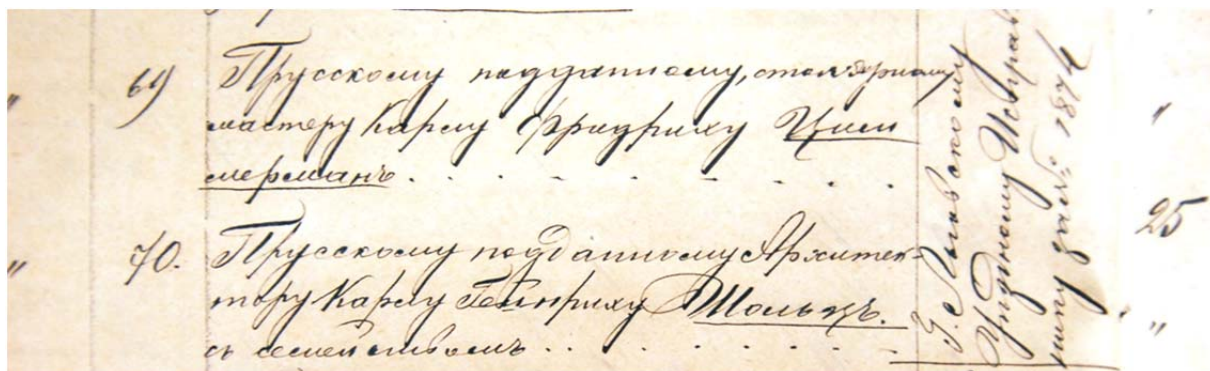 69 Прусскому подданному, столярному
мастеру Карлу Фридриху Цим
мерманъ . . . . . . .
70. Прусскому подданному Архитек-
тору Карлу Гейнриху Шольцъ.
съ семействомъ . . . . . .
Г.
Уѣздному Исправ
нику за № 1874
25